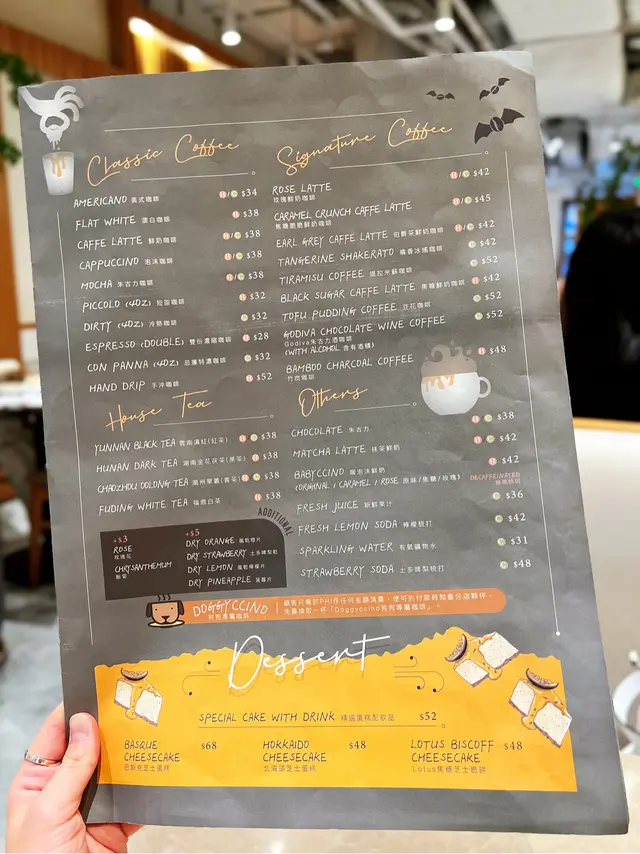 Classic Coffee
AMERICANO 美式咖啡 H/C $34
FLAT WHITE 澳白咖啡 H $38
CAFFE LATTE 鮮奶咖啡 H/C $38
CAPPUCCINO 泡沫咖啡 H/C $38
MOCHA 朱古力咖啡 H/C $38
PICCOLO (4OZ) 短笛咖啡 H $32
DIRTY (4OZ) 冷熱咖啡 C $32
ESPRESSO (DOUBLE) 雙份濃縮咖啡 H $28
CON PANNA (4OZ) 忌廉特濃咖啡 C $32
HAND DRIP 手沖咖啡 H $52
Signature Coffee
ROSE LATTE H/C $42
玫瑰鮮奶咖啡
CARAMEL CRUNCH CAFFE LATTE H/C $45
焦糖脆脆鮮奶咖啡
EARL GREY CAFFE LATTE 伯爵茶鮮奶咖啡 H/C $42
TANGERINE SHAKERATO 橘香冰搖咖啡 C $42
TIRAMISU COFFEE 提拉米蘇咖啡 C $52
BLACK SUGAR CAFFE LATTE 黑糖鮮奶咖啡 H $42
TOFU PUDDING COFFEE 豆花咖啡 C $52
GODIVA CHOCOLATE WINE COFFEE C $52
Godiva朱古力酒咖啡
(WITH ALCOHOL 含有酒精)
BAMBOO CHARCOAL COFFEE H $48
竹炭咖啡
House Tea
YUNNAN BLACK TEA 雲南滇紅(紅茶) H C $38
HUNAN DARK TEA 湖南金花茯茶(黑茶) H C $38
CHAOZHOU OOLONG TEA 潮州單叢(青茶) H C $38
FUDING WHITE TEA 福鼎白茶 H $38
ADDITIONAL
+$3
ROSE
玫瑰花
CHRYSANTHEMUM
胎菊
+$5
DRY ORANGE 風乾橙片
DRY STRAWBERRY 士多啤梨乾
DRY LEMON 風乾檸檬片
DRY PINEAPPLE 菠蘿片
Others
CHOCOLATE 朱古力 H C $38
MATCHA LATTE 抹茶鮮奶 H C $42
BABYCCINO 寵泡沫鮮奶 H $42
(ORIGINAL / CARAMEL / ROSE 原味/焦糖/玫瑰) DECAFFEINATED
FRESH JUICE 新鮮果汁 C $36
FRESH LEMON SODA 檸檬梳打 C $42
SPARKLING WATER 有氣礦物水 C $31
STRAWBERRY SODA 士多啤梨梳打 C $48
DOGGYCCINO
狗狗專屬咖啡
顧客只需於PHI作任何金額消費，便可於付款時知會分店夥伴，
免費換取一杯「Doggyccino狗狗專屬咖啡」。
Dessert
SPECIAL CAKE WITH DRINK 精選蛋糕配飲品 $52
BASQUE CHEESECAKE $68
巴斯克芝士蛋糕
HOKKAIDO CHEESECAKE $48
北海道芝士蛋糕
LOTUS BISCOFF CHEESECAKE $48
Lotus焦糖芝士脆餅